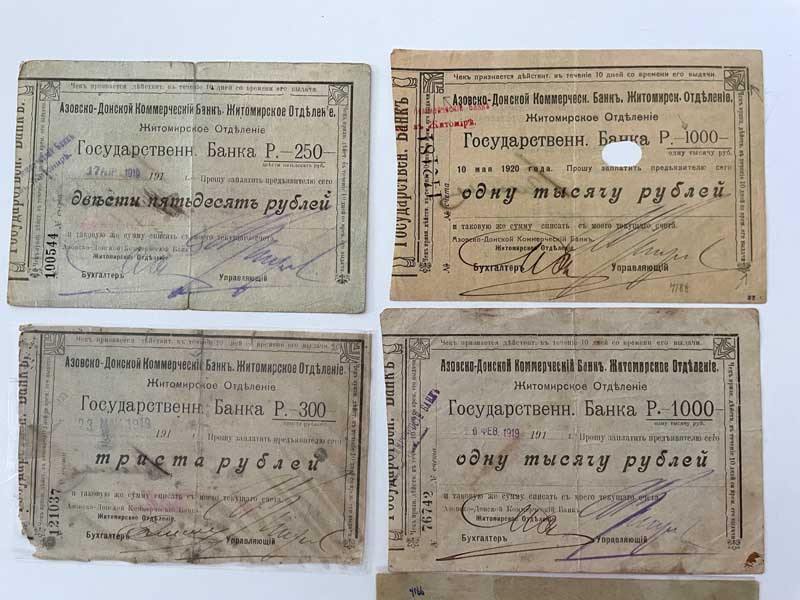 Чекъ признается дѣйствит. въ теченіе 10 дней со времени его выдачи.
Азовско-Донской Коммерческій Банкъ. Житомирское Отдѣленіе.
Житомирское Отдѣленіе
Государственн. Банка Р.—250—
17 191
Прошу заплатить предъявителю сего
двѣсти пятьдесятъ рублей
и таковую же сумму списать съ моего текущаго счета.
Азовско-Донской Коммерческій Банкъ
Житомирское Отдѣленіе.
Бухгалтеръ Управляющій
Государственн. Банкъ.
100544
Чекъ признается дѣйствит. въ теченіе 10 дней со времени его выдачи.
Азовско-Донской Коммерческ. Банкъ, Житомирск. Отдѣленіе.
Житомирское Отдѣленіе
Государственн. Банка Р.—1000—
одну тысячу руб.
10 мая 1920 года. Прошу заплатить предъявителю сего
одну тысячу рублей
и таковую же сумму списать съ моего текущаго счета.
Азовско-Донской Коммерческій Банкъ.
Житомирское Отдѣленіе
Бухгалтеръ Управляющій
Государствен. Банкъ
№
37
Чекъ признается дѣйствит. въ теченіе 10 дней со времени его выдачи.
Азовско-Донской Коммерческій Банкъ. Житомирское Отдѣленіе.
Житомирское Отдѣленіе
Государственн. Банка Р.—300—
триста рублей
23 МАЯ 1919 191 г. Прошу заплатить предъявителю сего
триста рублей
и таковую же сумму списать съ моего текущаго счета.
Азовско-Донской Коммерческій Банкъ
Житомирское Отдѣленіе.
Бухгалтеръ Управляющій
121037
Чекъ признается дѣйствит. въ теченіе 10 дней со времени его выдачи.
Азовско-Донской Коммерческій Банкъ. Житомирское Отдѣленіе.
Житомирское Отдѣленіе
Государственн. Банка Р.—1000—
одну тысячу руб.
6 ФЕВ. 1919 191 г. Прошу заплатить предъявителю сего
одну тысячу рублей
и таковую же сумму списать съ моего текущаго счета.
Азовско-Донской Коммерческій Банкъ
Житомирское Отдѣленіе.
Бухгалтеръ Управляющій
№ 76742